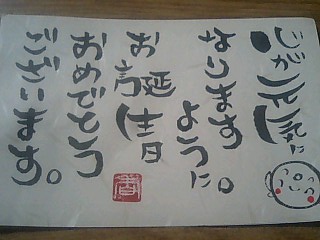 心が元気に
なります
ように。
お誕生日
おめでとう
ございます。